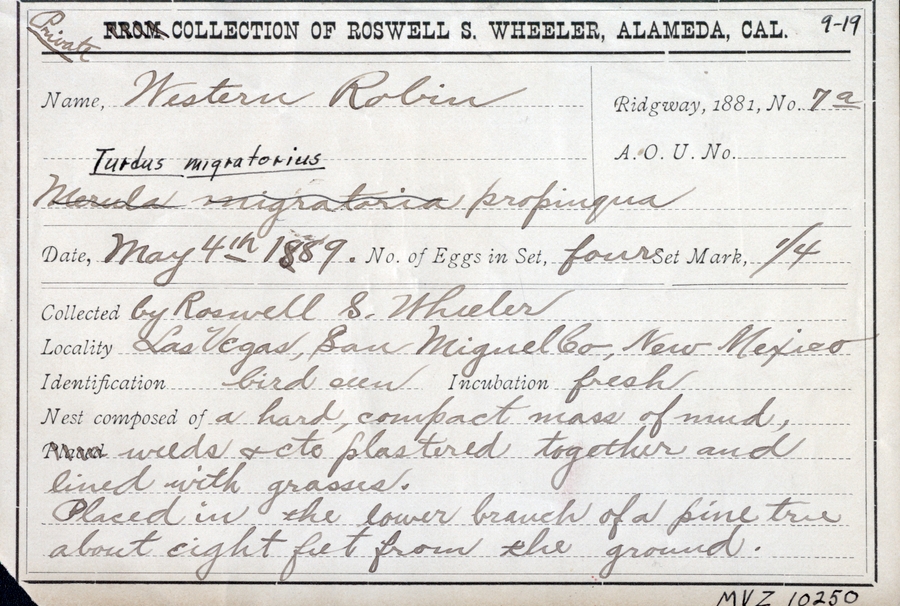 Private FROM COLLECTION OF ROSWELL S. WHEELER, ALAMEDA, CAL. 9-19
Name, Western Robin Ridgway, 1881, No. 7a
Turdus migratorius A. O. U. No.
Merula migratoria propinqua
Date, May 4th 1889. No. of Eggs in Set, four Set Mark, 1/4
Collected by Roswell S. Wheeler
Locality Las Vegas, San Miguel Co, New Mexico
Identification bird seen Incubation fresh
Nest composed of a hard, compact mass of mud,
Placed weeds &cto plastered together and
lined with grasses.
Placed in the lower branch of a pine tree
about eight feet from the ground.
MVZ 10250